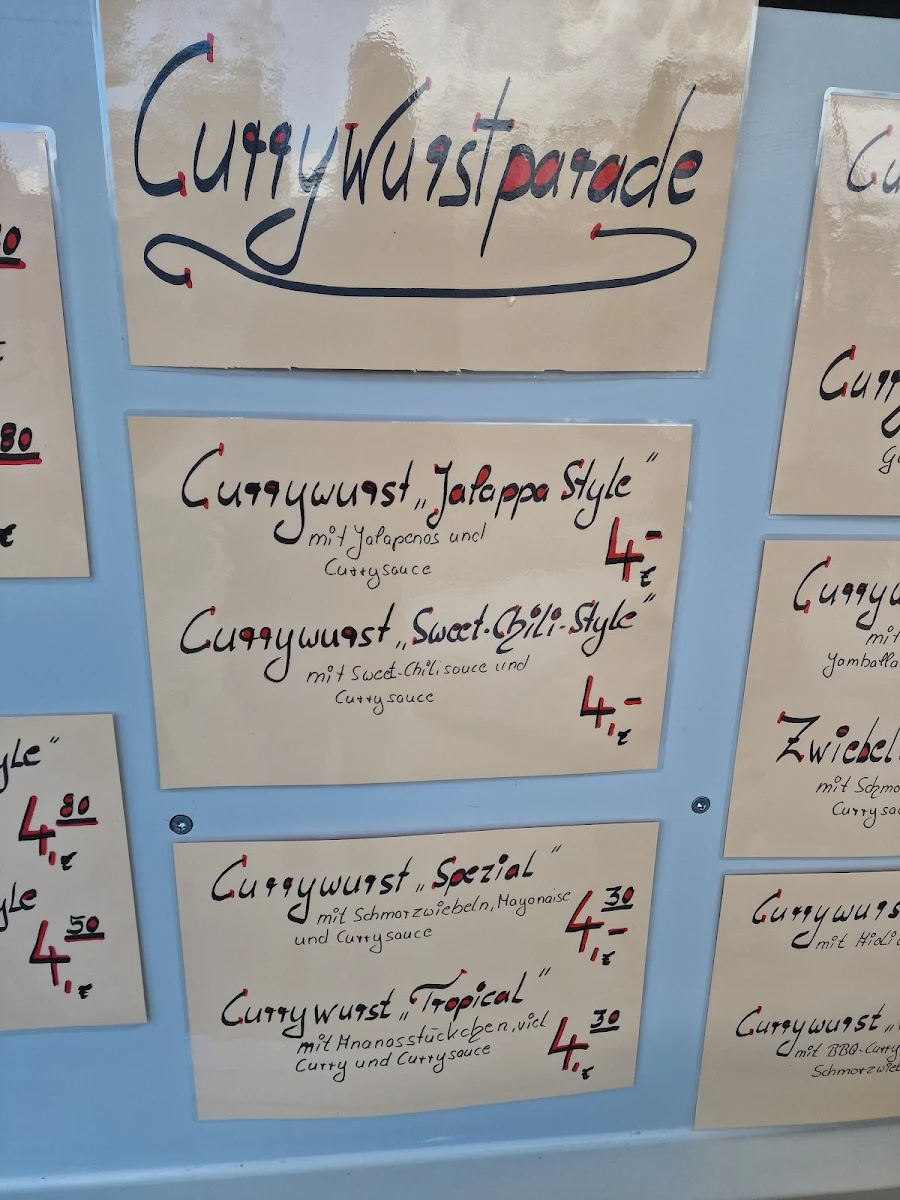 Currywurstparade
Currywurst „Jalappa Style"
mit Jalapenos und
Currysauce
4,- €
Currywurst „Sweet-Chili-Style"
mit Sweet-Chilisauce und
Currysauce
4,- €
Currywurst „Spezial"
mit Schmorzwiebeln, Mayonaise
und Currysauce
4,30 €
Currywurst „Tropical"
mit Ananasstückchen, viel
Curry und Currysauce
4,30 €
80
€
yle"
4,80 €
yle
4,50 €
Cu
Curry
Curryw
mit
Jamballa
Zwiebel
mit Schmo
Currysa
Currywurs
mit
Currywurst „
mit BBQ-Curry
Schmorzwieb